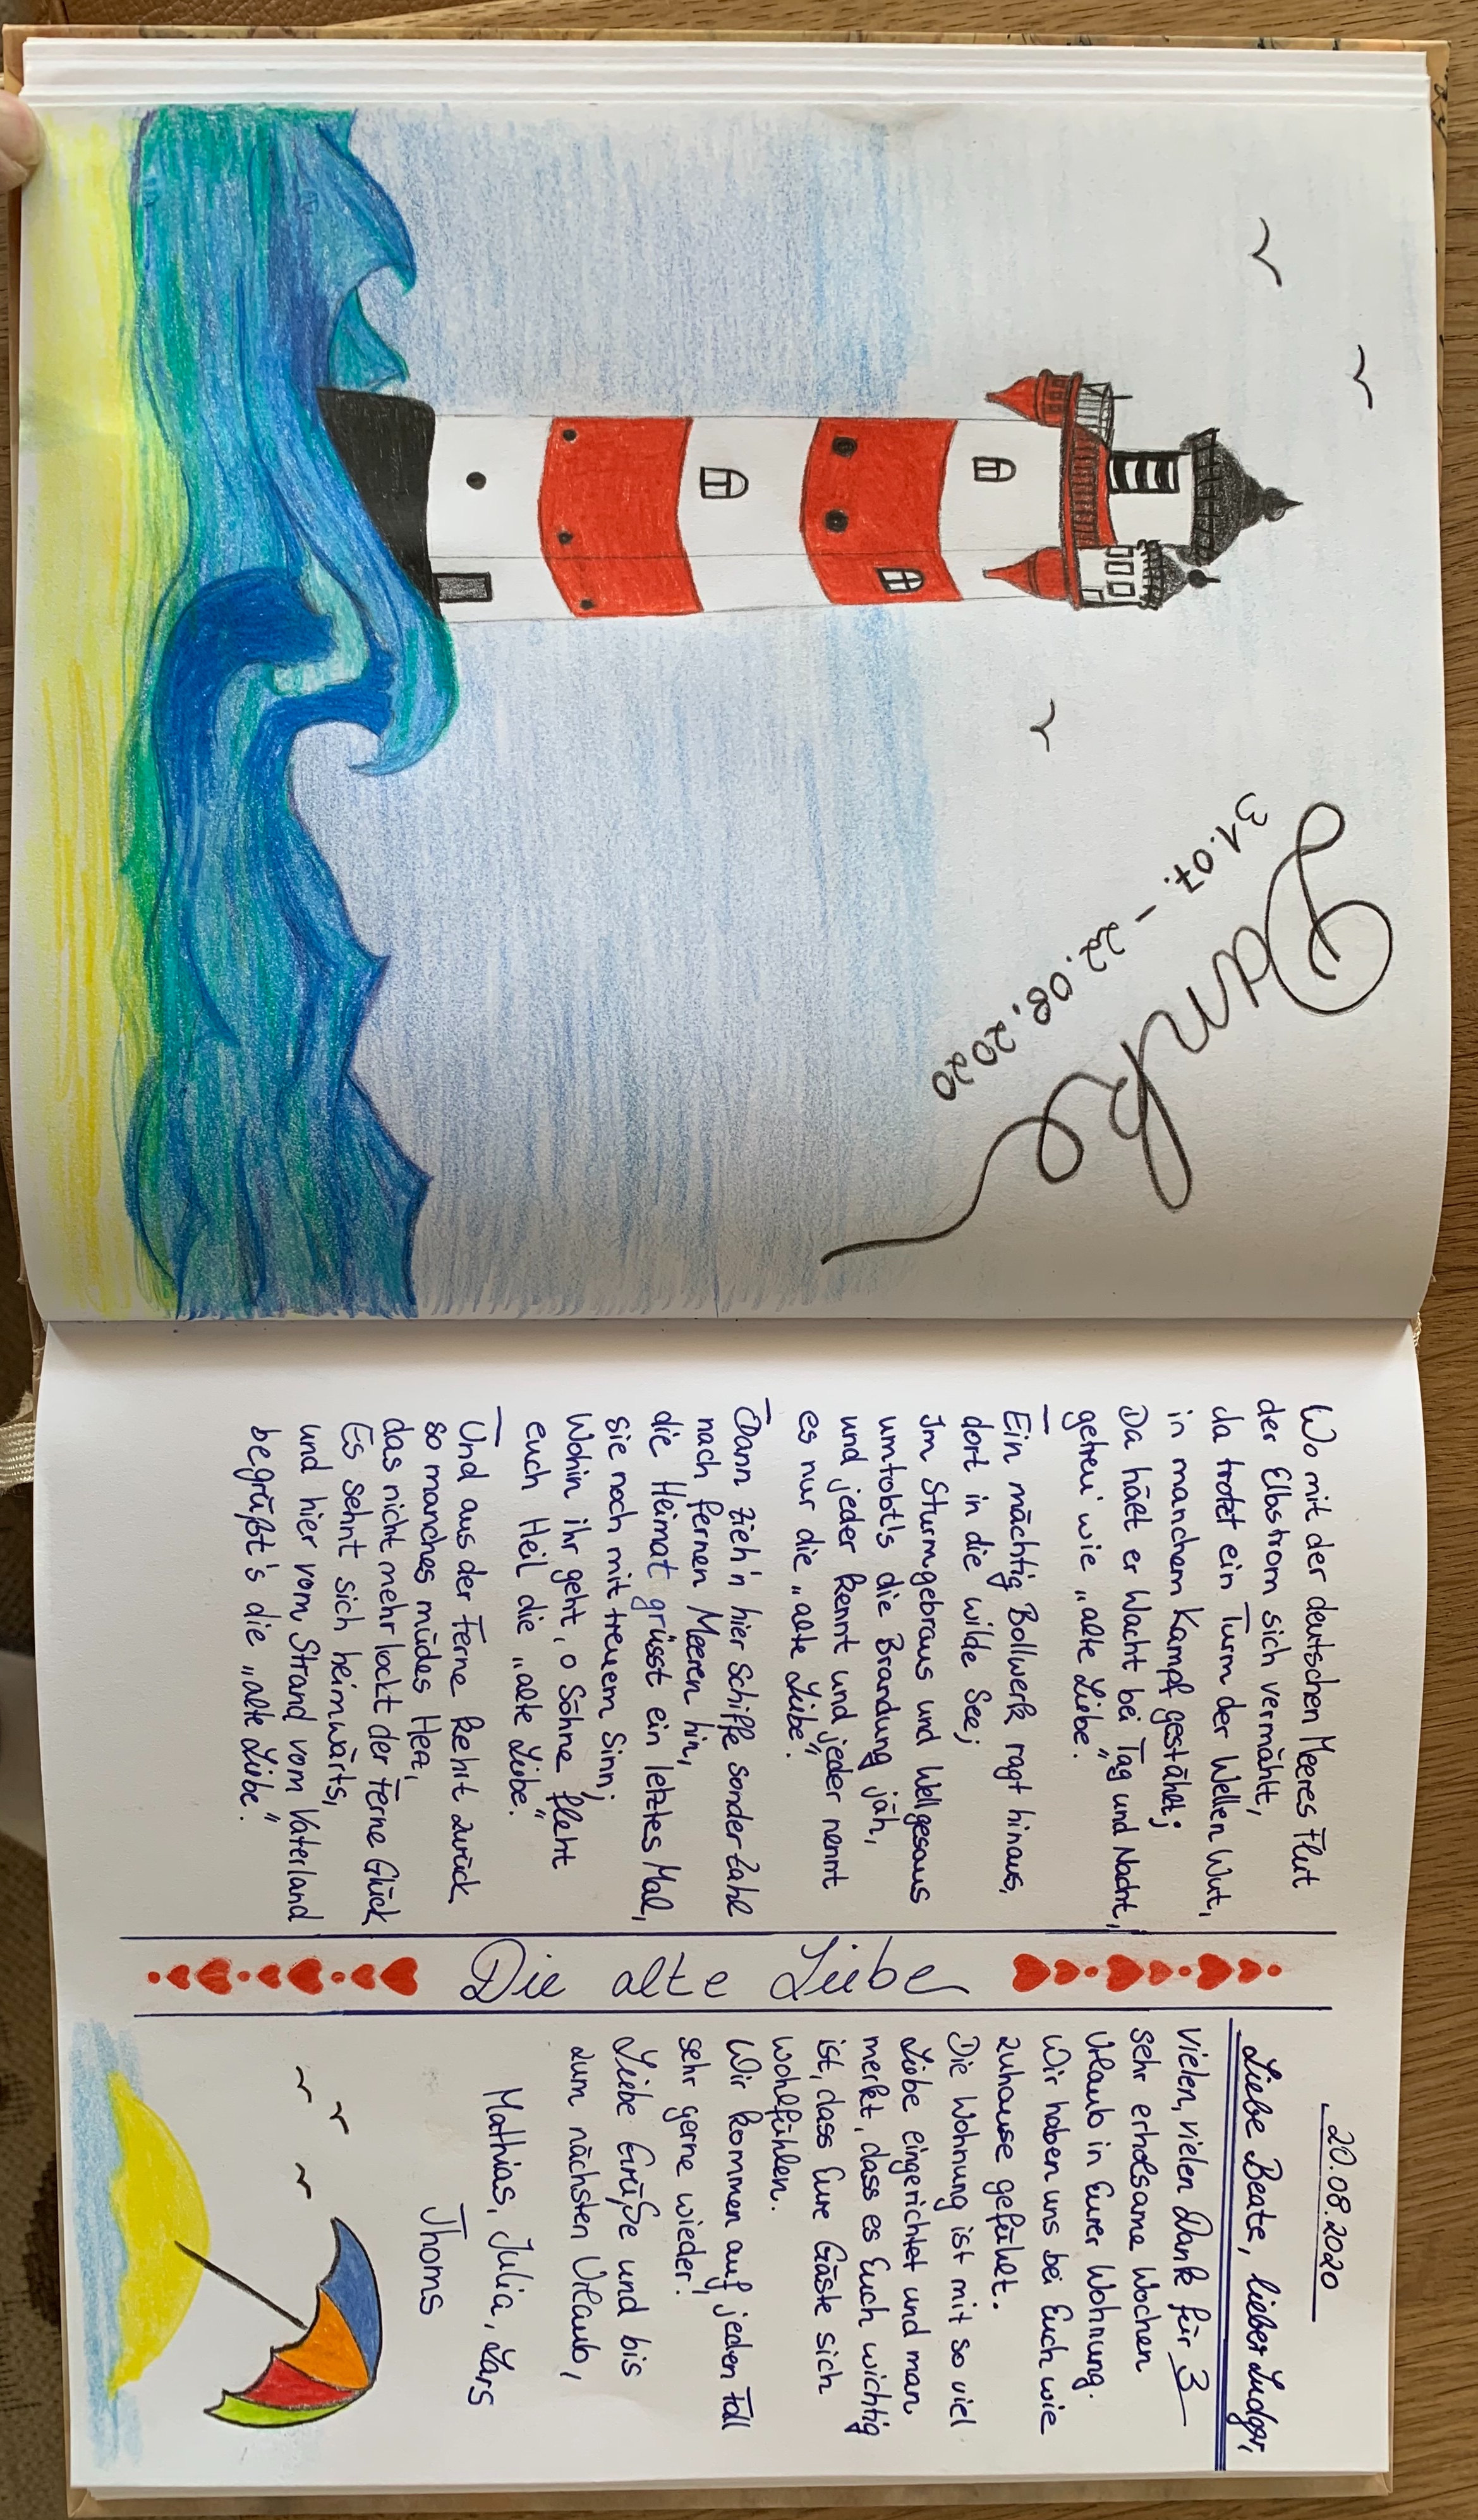 Danke
31.07. - 22.08.2020
Wo mit der deutschen Meeres Flut
der Elbstrom sich vermählt,
da trotzt ein Turm der Wellen Wut,
in manchem Kampf gestählt;
Da hält er Wacht bei Tag und Nacht,
getreu wie „alte Liebe".
Ein mächtig Bollwerk ragt hinaus,
dort in die wilde See;
Im Sturmgebraus und Wellgesaus
umtobt's die Brandung jäh,
und jeder kennt und jeder nennt
es nur die „alte Liebe".
Dann zieh'n hier Schiffe sonder Zahl
nach fernen Meeren hin,
die Heimat grüsst ein letztes Mal,
sie noch mit treuem Sinn;
Wohin ihr geht, o Söhne fleht
euch Heil die „alte Liebe".
Und aus der Ferne kehrt zurück
so manches müdes Herz,
das nicht mehr lockt der Ferne Glück
Es sehnt sich heimwärts,
und hier vom Strand vom Vaterland
begrüßt's die „alte Liebe".
Die alte Liebe
20.08.2020
Liebe Beate, lieber Ludger,
vielen, vielen Dank für 3
sehr erholsame Wochen
Urlaub in Eurer Wohnung.
Wir haben uns bei Euch wie
zuhause gefühlt.
Die Wohnung ist mit so viel
Liebe eingerichtet und man
merkt, dass es Euch wichtig
ist, dass Eure Gäste sich
wohlfühlen.
Wir kommen auf jeden Fall
sehr gerne wieder!
Liebe Grüße und bis
zum nächsten Urlaub,
Mathias, Julia, Lars
Thoms